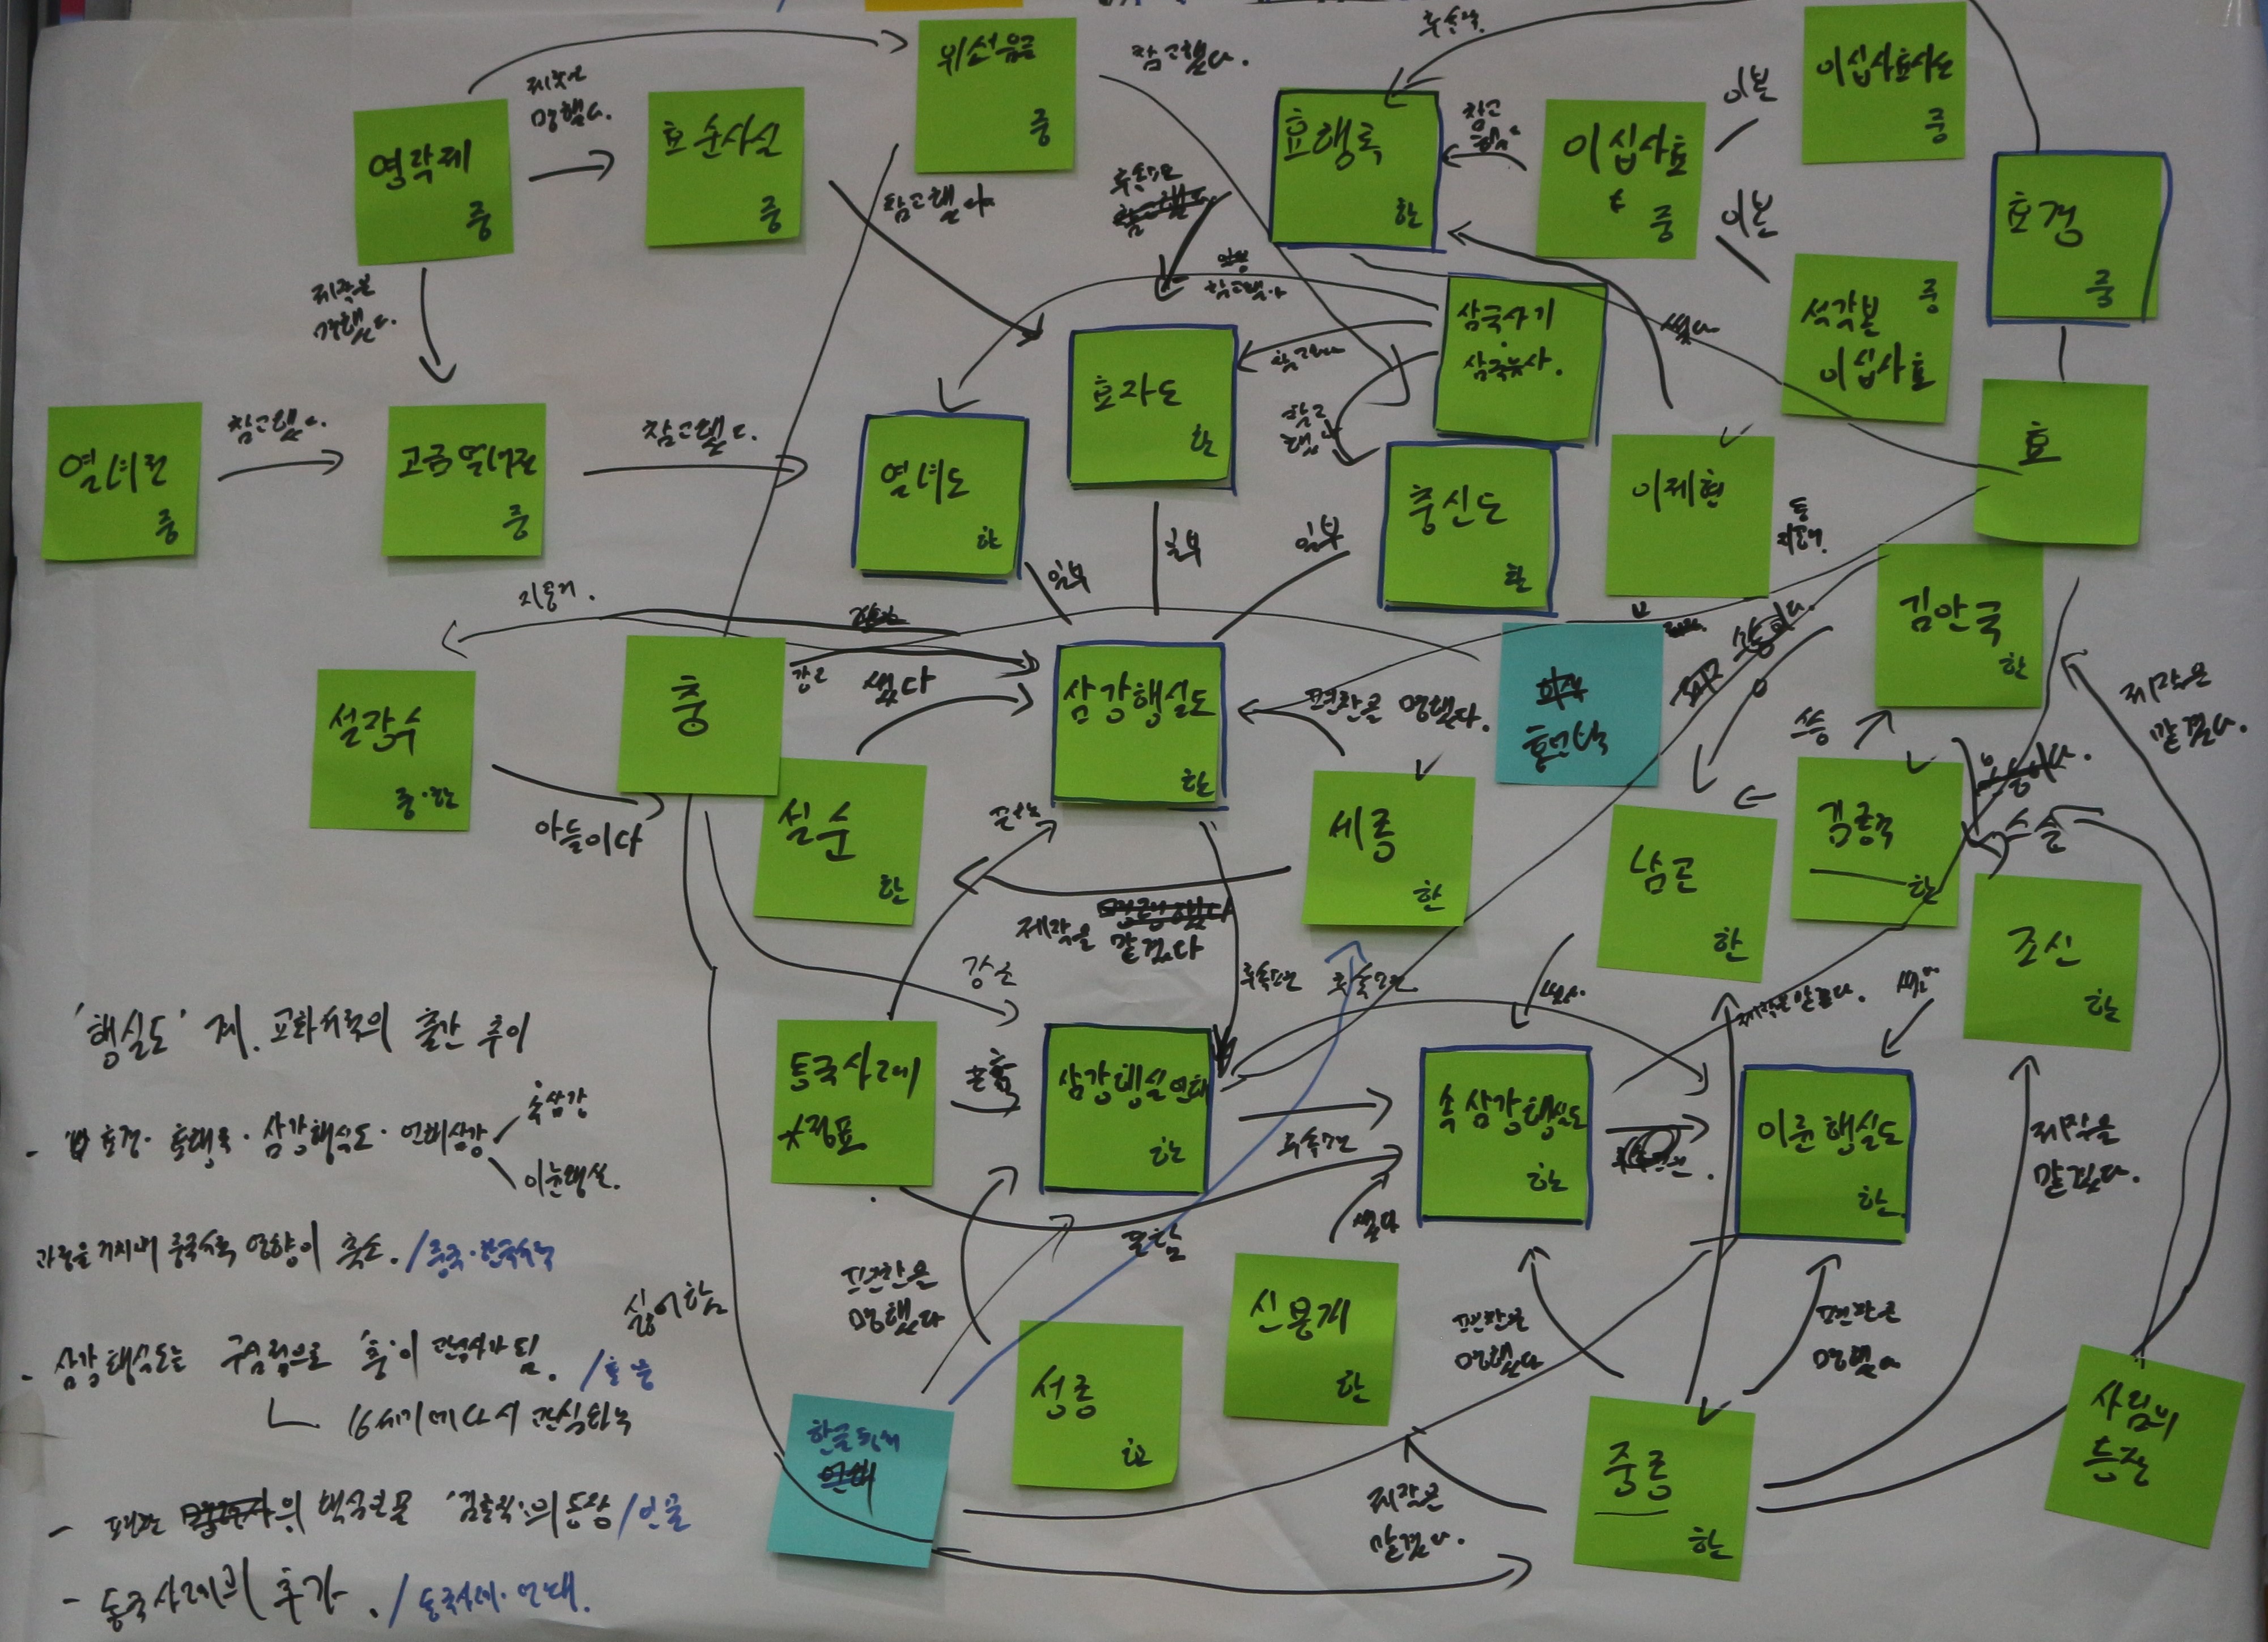 위선음즐
중
참고했다.
후속작
이십사효사도
중
영락제
중
제작을
명했다.
효순사실
중
참고했다
효행록
한
참고
했다
이십사효
중
이본
이본
효경
중
석각본
중
이십사효
제작을
명했다.
후속편
삼국사기
삼국유사.
참고
했다
썼다
열녀전
중
참고했다.
고금열녀전
중
참고했다.
열녀도
한
효자도
한
충신도
한
이제현
효
일부
일부
일부
김안국
한
설장수
중·한
아들이다
충
강조
썼다
설순
한
삼강행실도
한
편찬을 명했다.
세종
한
제작을
맡겼다
남곤
한
스승
김종직
한
스승
조신
한
제작을
맡겼다.
강조
후속편
후속편
썼다.
제작을 맡겼다.
동국사례
포함
삼강행실언해
한
후속편
속삼강행실도
한
이륜행실도
한
제작을
맡겼다.
포함
썼다
편찬을
명했다
성종
한
신용개
한
편찬을
명했다
편찬을
명했다
싫어함
중종
한
제작을
맡겼다.
사림의
등장
'행실도' 계. 교화서적의 출간 추이
- 효경· 효행록·삼강행실도·언해삼강
속삼강
이륜행실.
과정을 거치며 중국서적 영향이 축소. / 중국·한국서적
- 삼강행실도는 구심점으로 '충'이 관심사가 됨. / 효 충
16세기에 다시 관심화
- 편찬 의 핵심인물 '김종직'의 등장 / 인물
- 동국사례의 추가. / 동국사례·언해.